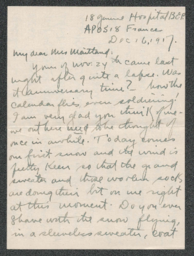 18 General Hospital BEF
APO S18 France
Dec 16, 1917.
My dear Mrs Maitland,
Yours of Nov. 27th came last
night after quite a lapse. Was
it anniversary time? how the
calendar flies even soldiering.
I am very glad you think of
us out here and the thought of
once in awhile. Today comes
our first snow and the wind is
pretty keen so that the grand
sweater and that woolen sock
are doing their bit on me right
at this moment. Do you ever
shave with the snow flying,
in a sleeveless sweater, coat